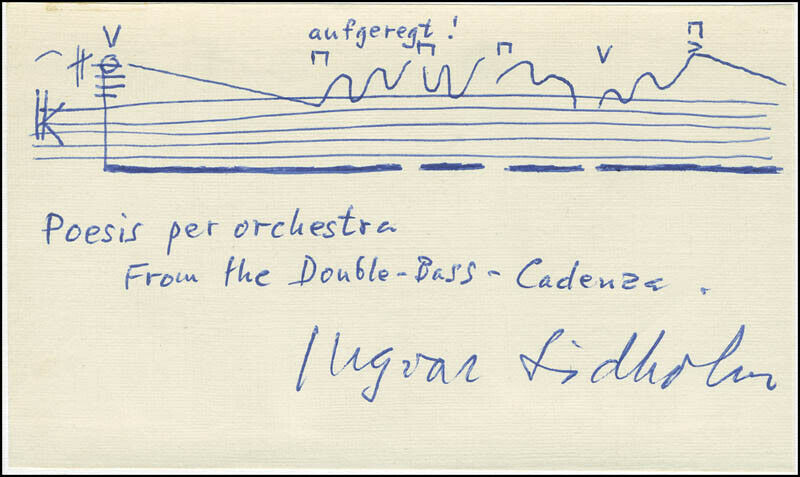 aufgeregt !
Poesis per orchestra
From the Double-Bass-Cadenza.
Ingvar Lidholm